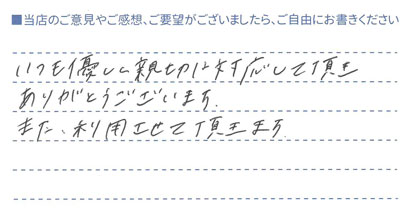 ■当店のご意見やご感想、ご要望がございましたら、ご自由にお書きください
いつも優しく親切に対応して頂き
ありがとうございます。
また、利用させて頂きます。